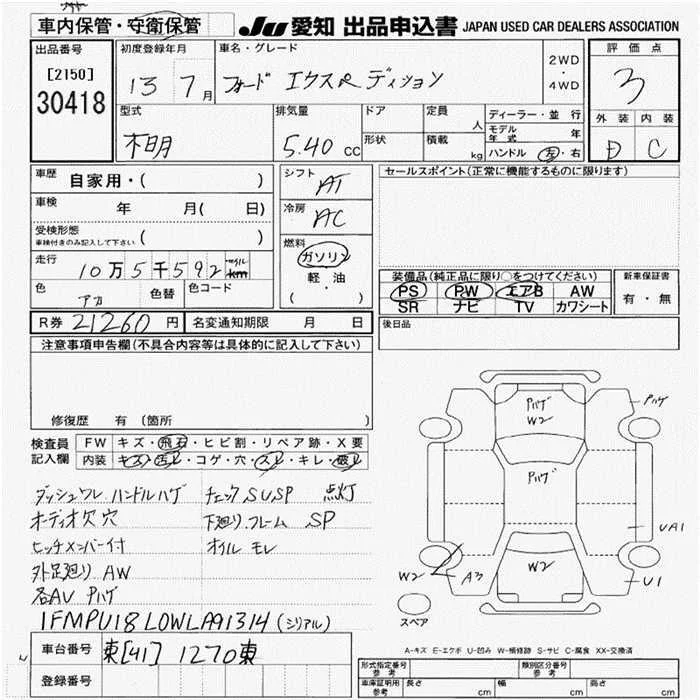 車内保管・守衛保管
JU 愛知 出品申込書 JAPAN USED CAR DEALERS ASSOCIATION
出品番号
[2150]
30418
初度登録年月
13 7月
車名・グレード
フォード エクスペディション
2WD
・
4WD
評価点
3
外装 内装
D C
型式
不明
排気量
5.40 cc
ドア
形状
定員
人
積載
kg
ディーラー・並行
モデル年式 年
ハンドル 左・右
車歴 自家用・( )
車検 年 月( 日)
受検形態
車検付きのみ記入して下さい ( )
走行 10万5千592 マイル km
色 アカ 色替 色コード
シフト AT
冷房 AC
燃料
ガソリン
軽・油
( ・ )
セールスポイント(正常に機能するものに限ります)
装備品(純正品に限り○をつけてください)
PS PW エアB AW
SR ナビ TV カワシート
新車保証書
有・無
R券 21260 円 名変通知期限 月 日
後日品
注意事項申告欄(不具合内容等は具体的に記入して下さい)
修復歴 有 (箇所 )
検査員記入欄
FW キズ・飛石・ヒビ割・リペア跡・X要
内装 キズ・汚レ・コゲ・穴・スレ・キレ・破レ
ダッシュワレ ハンドルハゲ チェックSUSP 点灯
オーディオ欠 穴 下廻り.フレーム SP
ヒッチメンバー付 オイルモレ
外足廻り AW
各AV Pハゲ
1FMPU18L0WLA91314 (シリアル)
Pハゲ
W2
Pハゲ
Pハゲ
W2
W2
A3
UA1
U1
スペア
A-キズ E-エクボ U-凹み W-補修跡 S-サビ C-腐食 XX-交換済
車台番号 東[41] 1270東
登録番号
形式指定番号
参考
類別区分番号
参考
車庫証明用
参考
長さ cm 幅 cm 高さ cm